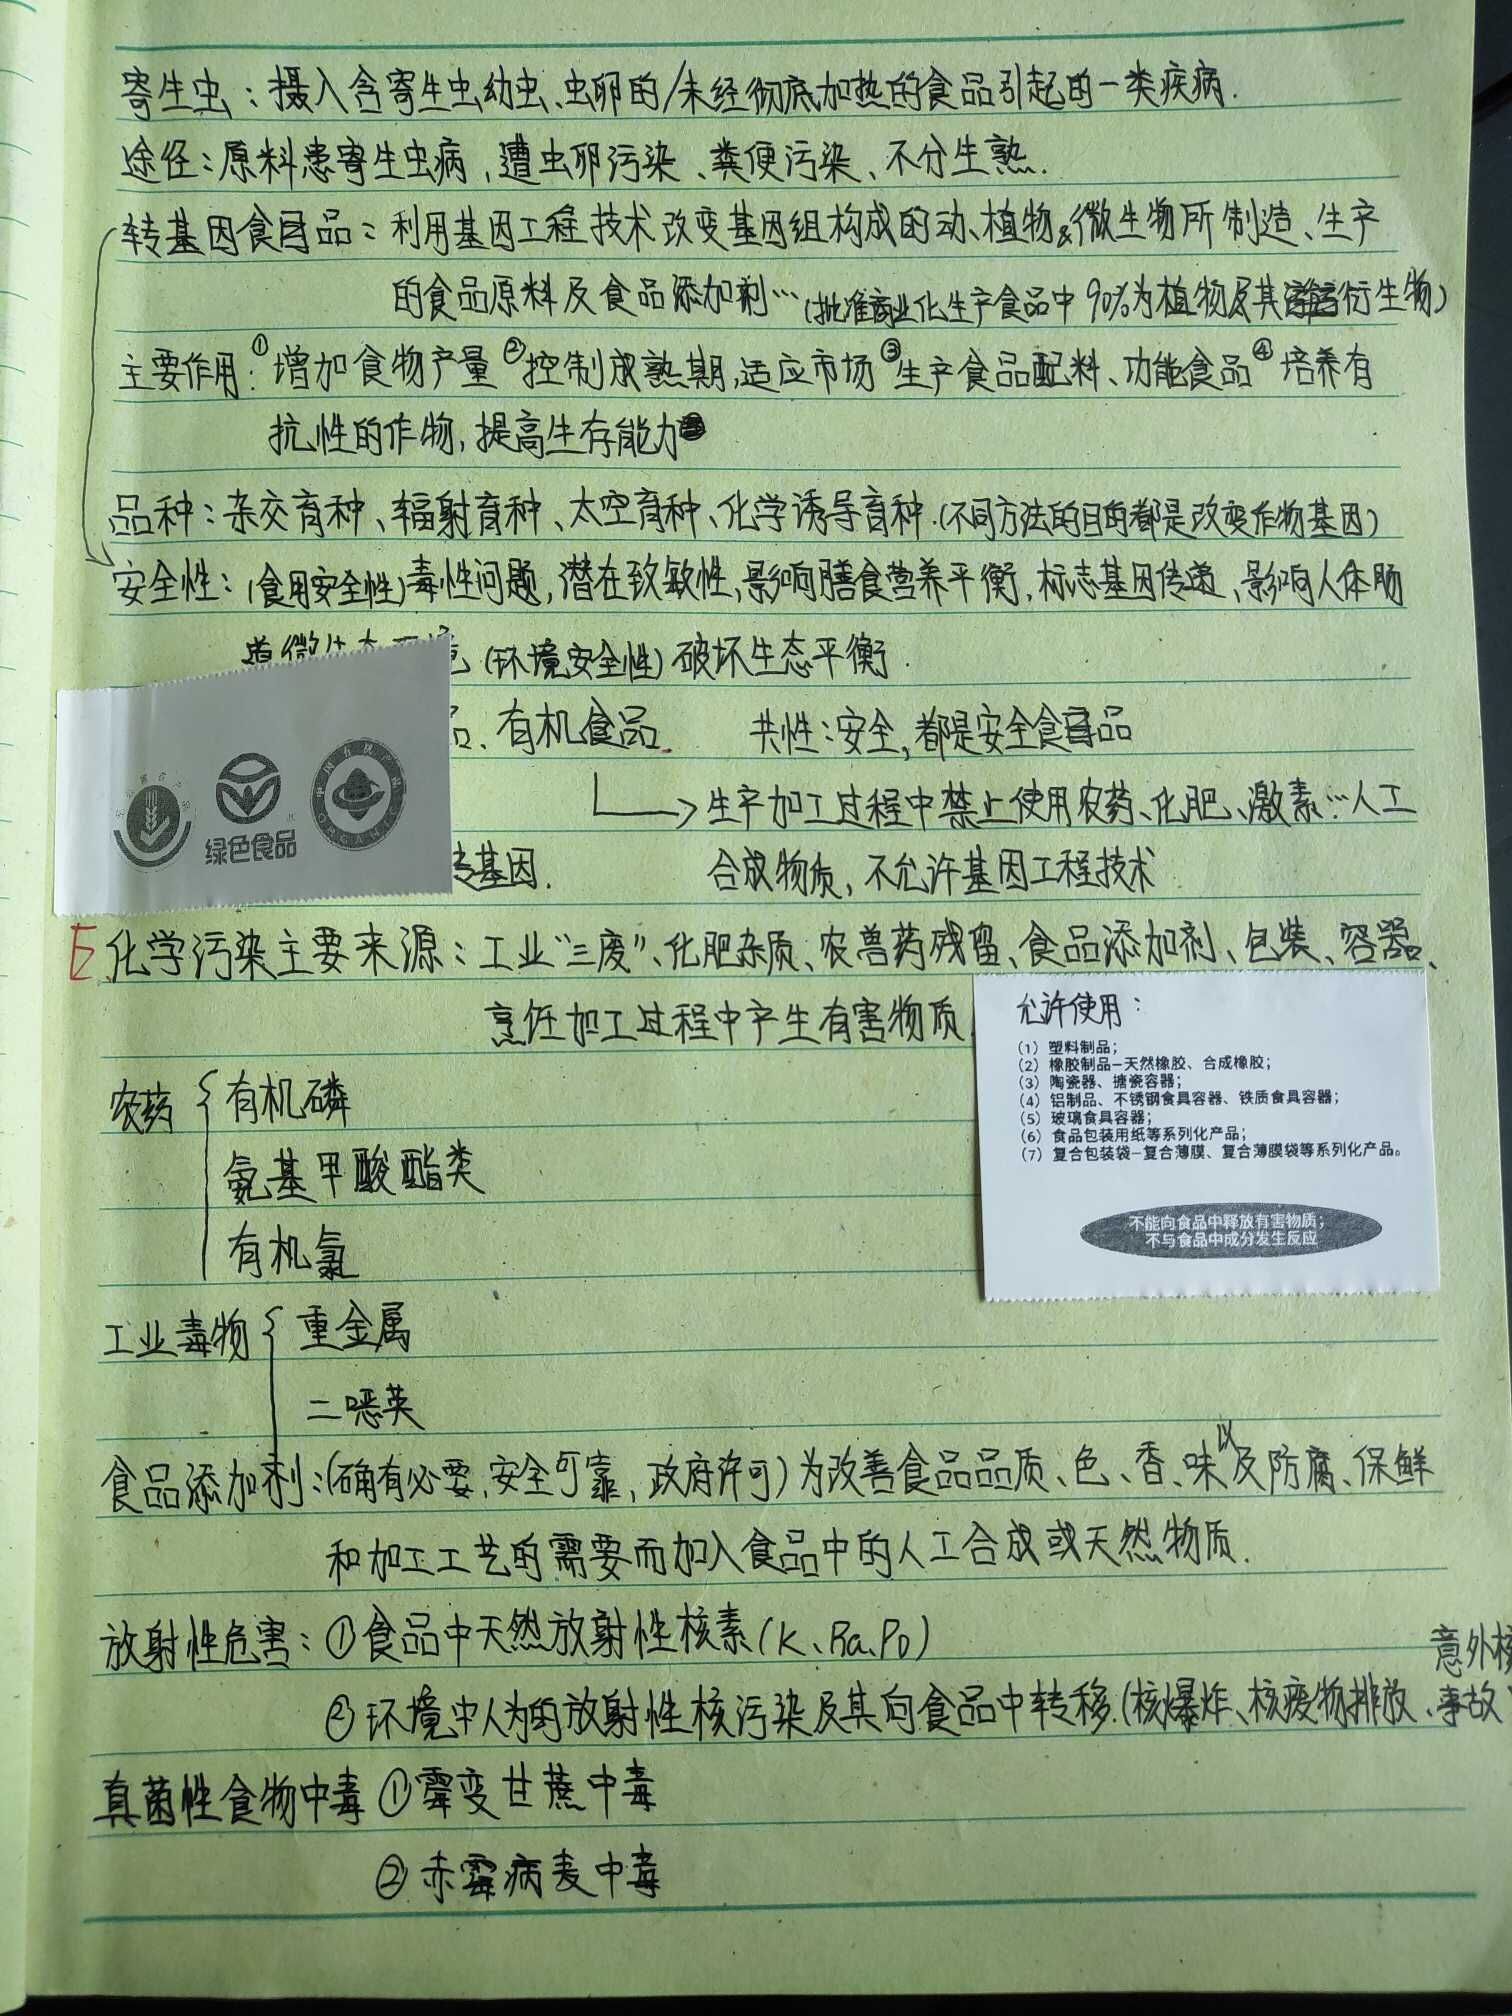 寄生虫：摄入含寄生虫幼虫、虫卵的/未经彻底加热的食品引起的一类疾病.
途径：原料患寄生虫病，遭虫卵污染、粪便污染、不分生熟.
转基因食品：利用基因工程技术改变基因组构成的动、植物&微生物所制造、生产
的食品原料及食品添加剂…(批准商业化生产食品中90%为植物及其衍生物)
主要作用：①增加食物产量②控制成熟期，适应市场③生产食品配料、功能食品④培养有
抗性的作物，提高生存能力
品种：杂交育种、辐射育种、太空育种、化学诱导育种.(不同方法的目的都是改变作物基因)
安全性：(食用安全性)毒性问题，潜在致敏性，影响膳食营养平衡，标志基因传递、影响人体肠
道微生态环境 (环境安全性)破坏生态平衡.
品、有机食品. 共性：安全，都是安全食品
→生产加工过程中禁止使用农药、化肥、激素…人工
中国有机产品
ORGANIC
绿色食品
转基因. 合成物质，不允许基因工程技术
E 化学污染主要来源：工业“三废”、化肥杂质、农兽药残留、食品添加剂、包装、容器、
烹饪加工过程中产生有害物质.
允许使用：
（1）塑料制品；
（2）橡胶制品—天然橡胶、合成橡胶；
（3）陶瓷器、搪瓷容器；
（4）铝制品、不锈钢食具容器、铁质食具容器；
（5）玻璃食具容器；
（6）食品包装用纸等系列化产品；
（7）复合包装袋—复合薄膜、复合薄膜袋等系列化产品。
不能向食品中释放有害物质；
不与食品中成分发生反应
农药{有机磷
氨基甲酸酯类
有机氯
工业毒物{重金属
二噁英
食品添加剂：(确有必要，安全可靠，政府许可)为改善食品品质、色、香、味以及防腐、保鲜
和加工工艺的需要而加入食品中的人工合成或天然物质.
放射性危害：①食品中天然放射性核素(K、Ra、Po)
②环境中人为的放射性核污染及其向食品中转移.(核爆炸、核废物排放、意外核事故)
真菌性食物中毒①霉变甘蔗中毒
②赤霉病麦中毒